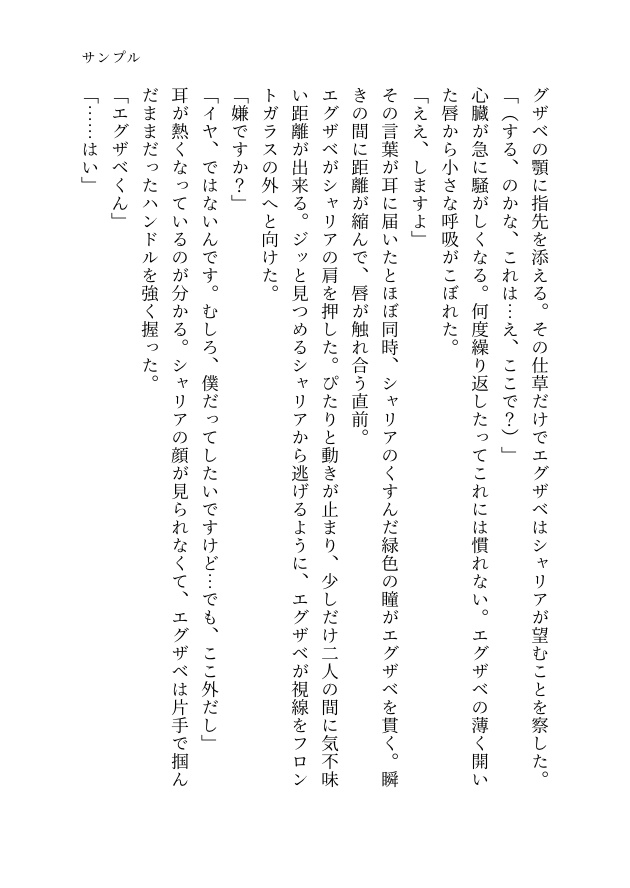 サンプル
グザベの顎に指先を添える。その仕草だけでエグザベはシャリアが望むことを察した。
「（する、のかな、これは…え、ここで？）」
心臓が急に騒がしくなる。何度繰り返したってこれには慣れない。エグザベの薄く開い
た唇から小さな呼吸がこぼれた。
「ええ、しますよ」
その言葉が耳に届いたとほぼ同時、シャリアのくすんだ緑色の瞳がエグザベを貫く。瞬
きの間に距離が縮んで、唇が触れ合う直前。
エグザベがシャリアの肩を押した。ぴたりと動きが止まり、少しだけ二人の間に気不味
い距離が出来る。ジッと見つめるシャリアから逃げるように、エグザベが視線をフロン
トガラスの外へと向けた。
「嫌ですか？」
「イヤ、ではないんです。むしろ、僕だってしたいですけど…でも、ここ外だし」
耳が熱くなっているのが分かる。シャリアの顔が見られなくて、エグザベは片手で掴ん
だままだったハンドルを強く握った。
「エグザベくん」
「……はい」